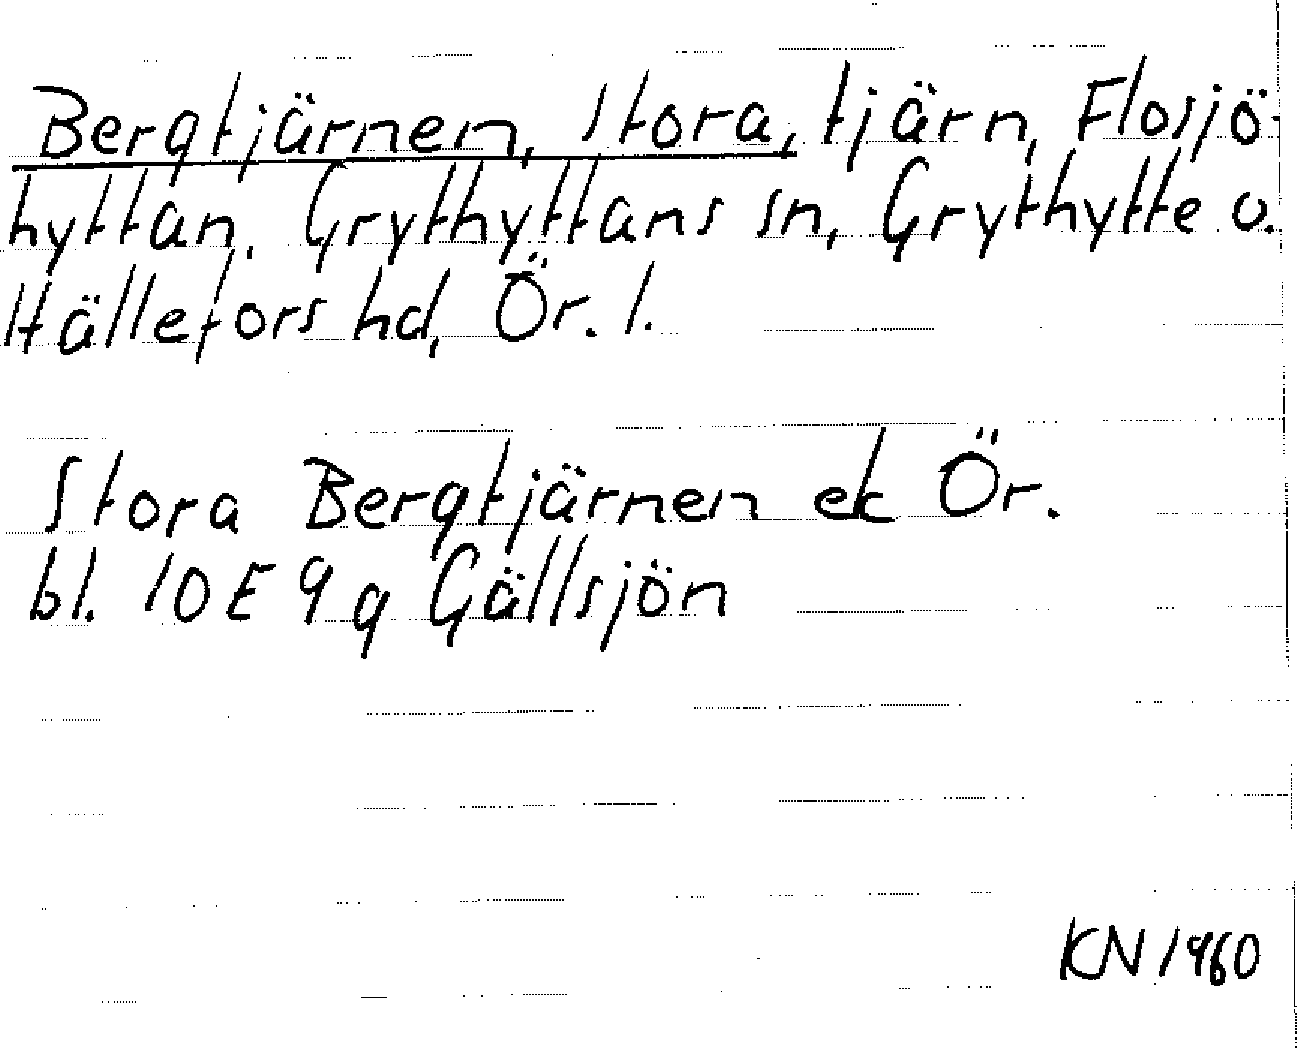 Bergtjärnen, Stora, tjärn, Flosjö-
hyttan, Grythyttans sn, Grythytte o.
Hällefors hd, Ör. l.
Stora Bergtjärnen ek Ör.
bl. 10 E 9 g Gällsjön
KN 1960